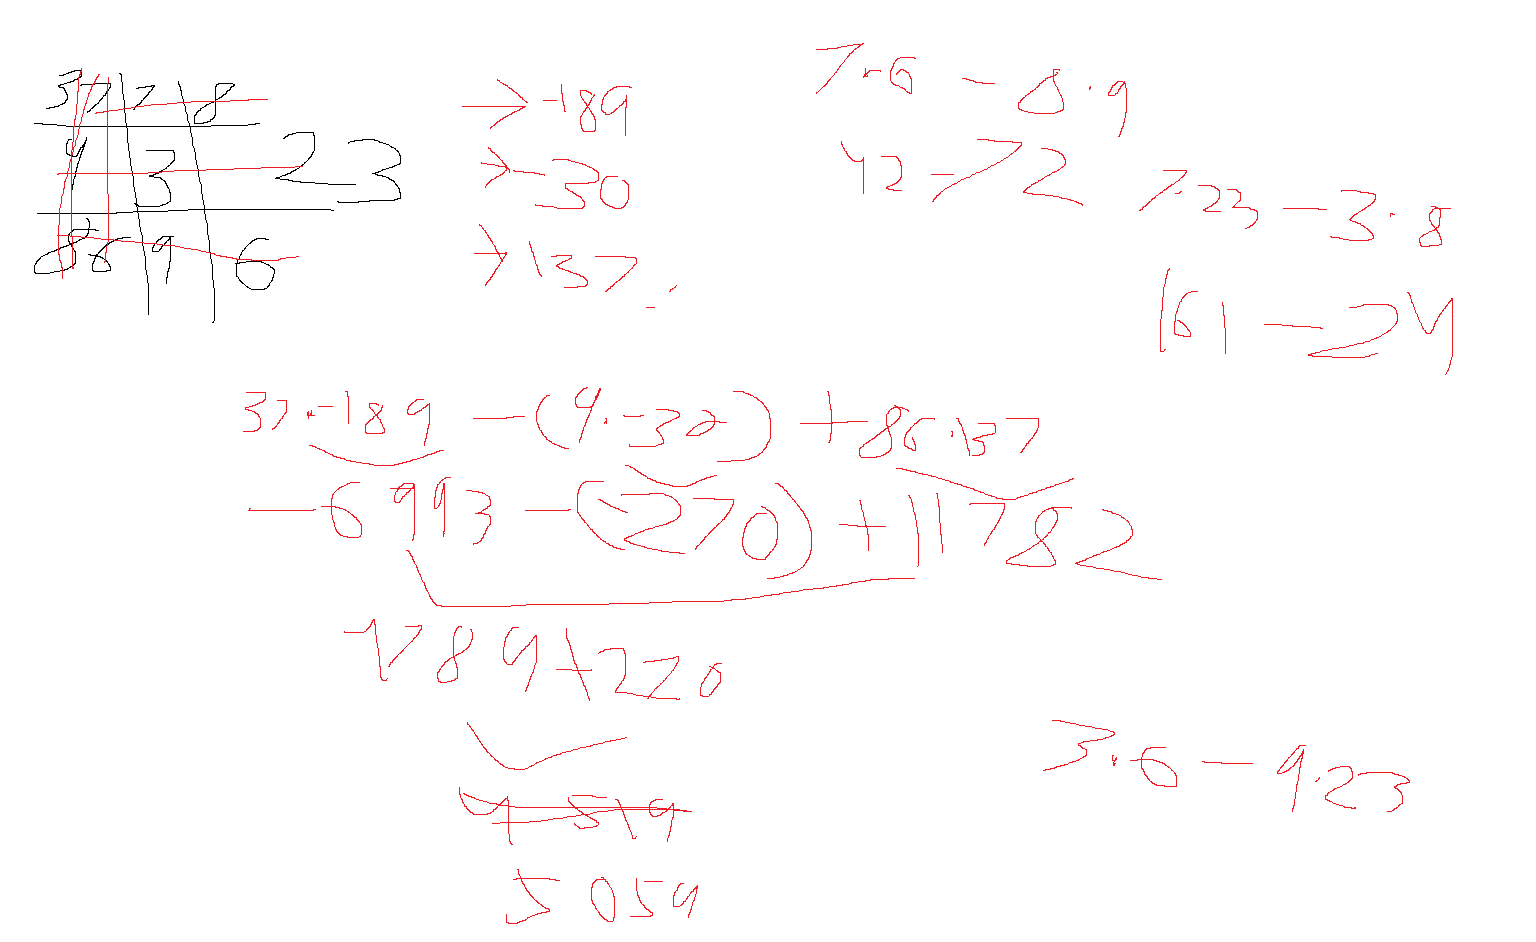 37 7 8
4 3 23
86 9 6
→ -189
→ -30
→ 137
7·6 - 8·9
42 - 72
7·23 - 3·8
161 - 24
37·-189 - (9·-30) + 86·137
-6993 - (-270) + 11782
4789 + 270
4519
5059
3·6 - 9·23